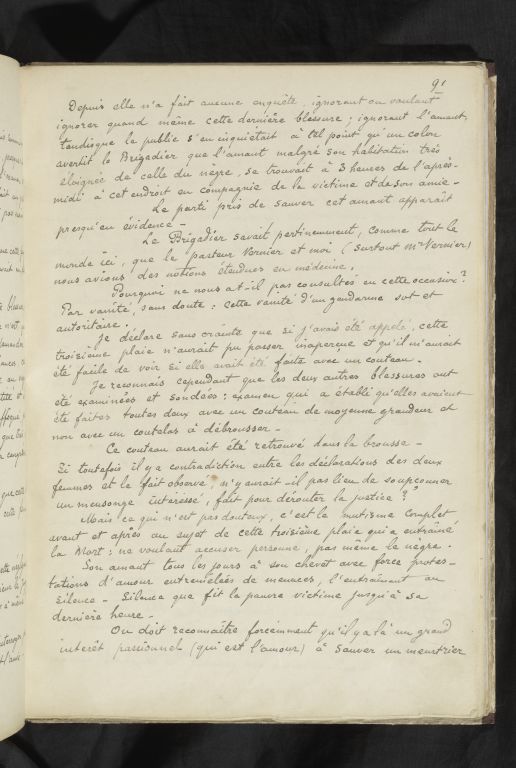 91
Depuis elle n'a fait aucune enquête, ignorant ou voulant
ignorer quand même cette dernière blessure ; ignorant l'amant,
tandisque le public s'en inquiétait à tel point qu'un colon
avertit le Brigadier que l'amant malgré son habitation très
éloignée de celle du nègre, se trouvait à 3 heures de l'après-
midi à cet endroit en compagnie de la victime et de son amie -
Le parti pris de sauver cet amant apparaît
presqu'en évidence -
Le Brigadier savait pertinemment, comme tout le
monde ici, que le pasteur Vernier et moi (surtout Mr Vernier)
nous avions des notions étendues en médecine.
Pourquoi ne nous a t-il pas consultés en cette occasion ?
Par vanité, sans doute : cette vanité d'un gendarme sot et
autoritaire.
Je déclare sans crainte que si j'avais été appelé, cette
troisième plaie n'aurait pu passer inaperçue et qu'il m'aurait
été facile de voir si elle avait été faite avec un couteau.
Je reconnais cependant que les deux autres blessures ont
été examinées et sondées : examen qui a établi qu'elles avaient
été faites toutes deux avec un couteau de moyenne grandeur et
non avec un coutelas à débrousser -
Ce couteau aurait été retrouvé dans la brousse -
Si toutefois il y a contradiction entre les déclarations des deux
femmes et le fait observé, n'y aurait-il pas lieu de soupçonner
un mensonge intéressé, fait pour dérouter la justice ?
Mais ce qui n'est pas douteux, c'est le mutisme complet
avant et après au sujet de cette troisième plaie qui a entraîné
la Mort ; ne voulant accuser personne, pas même le nègre.
Son amant tous les jours à son chevet avec force protes-
tations d'amour entremêlées de menaces, l'entraînant au
silence - Silence que fit la pauvre victime jusqu'à sa
dernière heure -
On doit reconnaître forcément qu'il y a là un grand
intérêt passionnel (qui est l'amour) à sauver un meurtrier